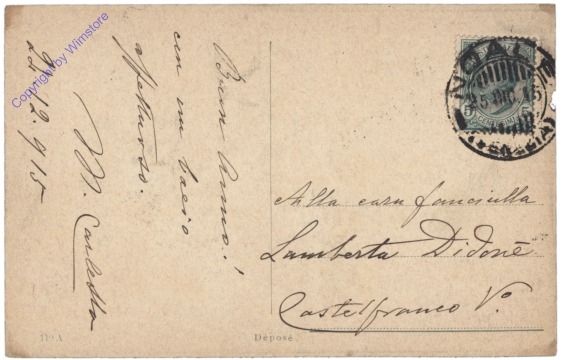 Buon Anno!
con un bacio
affettuoso.
M. Carletta
25.12.915
Alla cara fanciulla
Lamberta Didonè
Castelfranco V.o
NOALE
25 DIC. 15
(VENEZIA)
5
Déposé
11° A
Copyright by Wimstore